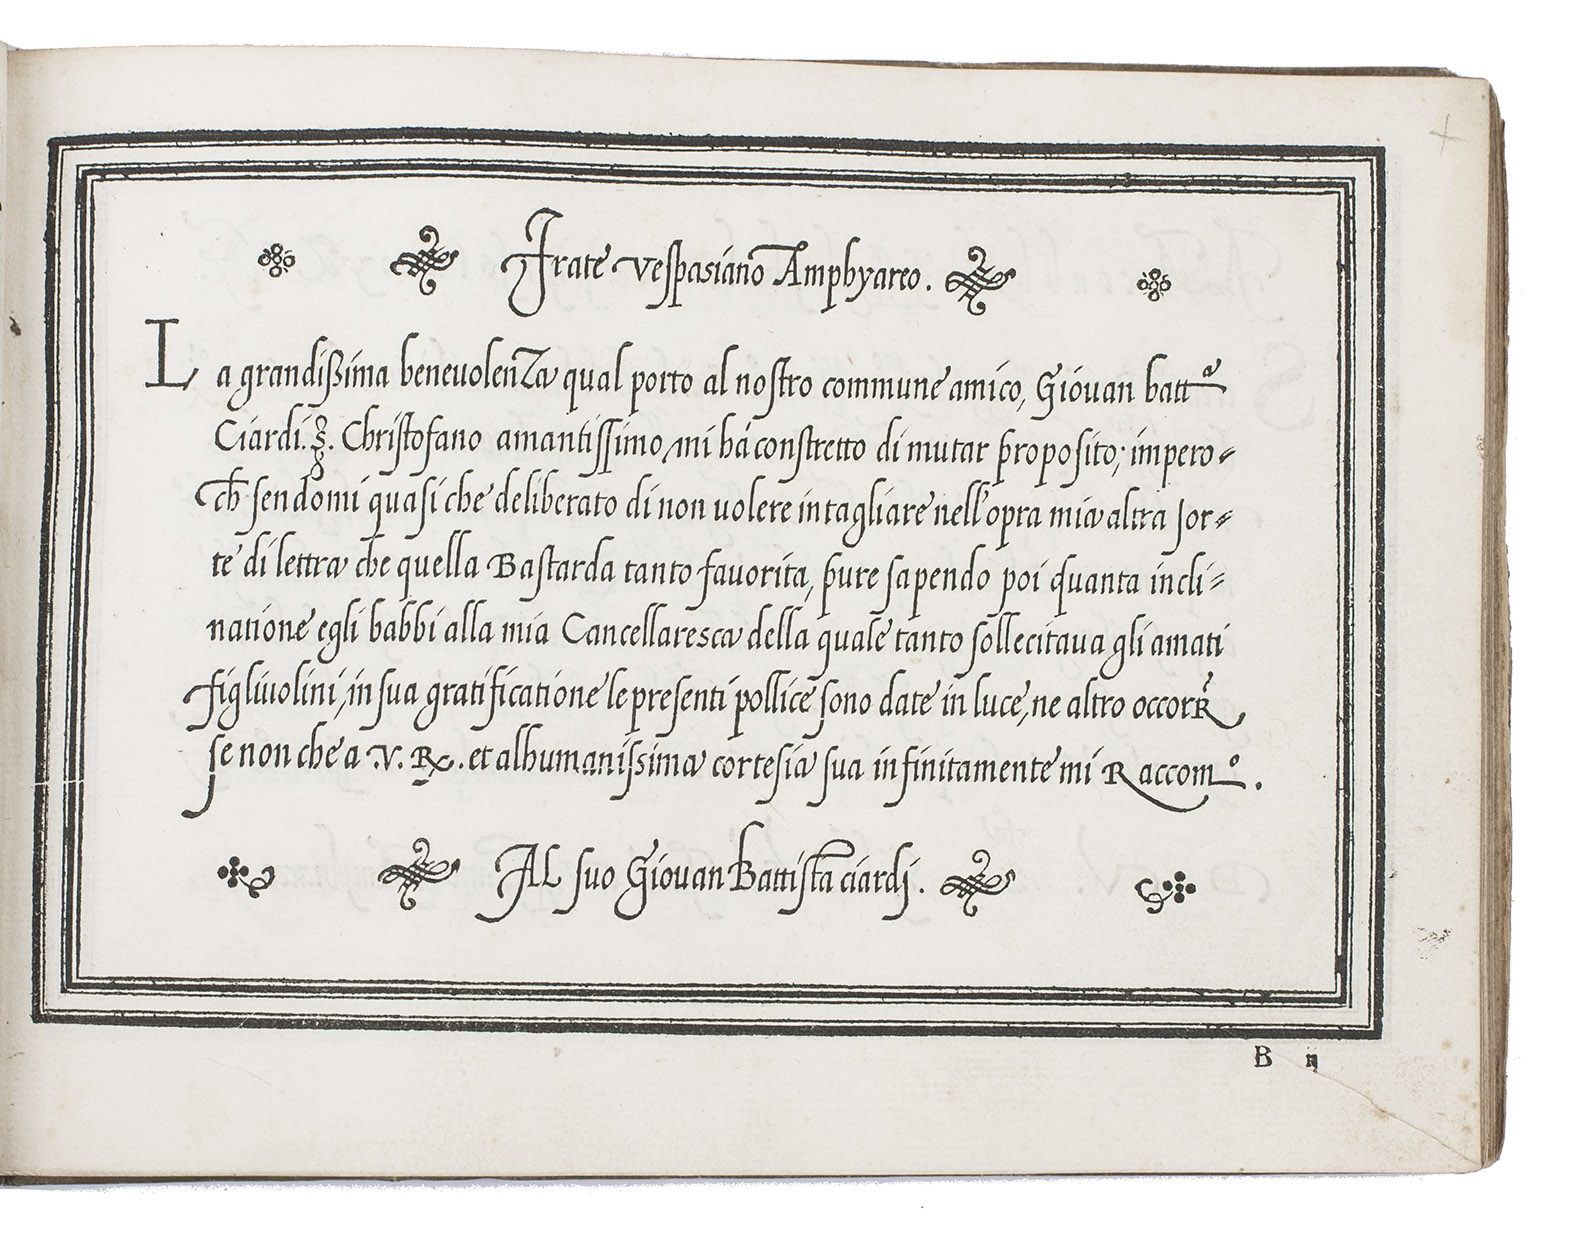 Frate Vespasiano Amphyareo.
La grandissima beneuolenza qual porto al nostro commune amico, Giouan batt.ª
Ciardi. Christofano amantissimo, mi hà constretto di mutar proposito; impero-
ch sendomi quasi che deliberato di non uolere intagliare nell'opra mia altra sor-
te di lettra che quella Bastarda tanto fauorita, pure sapendo poi quanta incli-
natione egli habbi alla mia Cancellaresca della quale tanto sollecitaua gli amati
figliuolini, in sua gratificatione le presenti pollice sono date in luce, ne altro occorR
se non che a V. R. et alhumanissima cortesia sua infinitamente mi Raccom.º.
AL suo Giouan Battista ciardi.
B ij